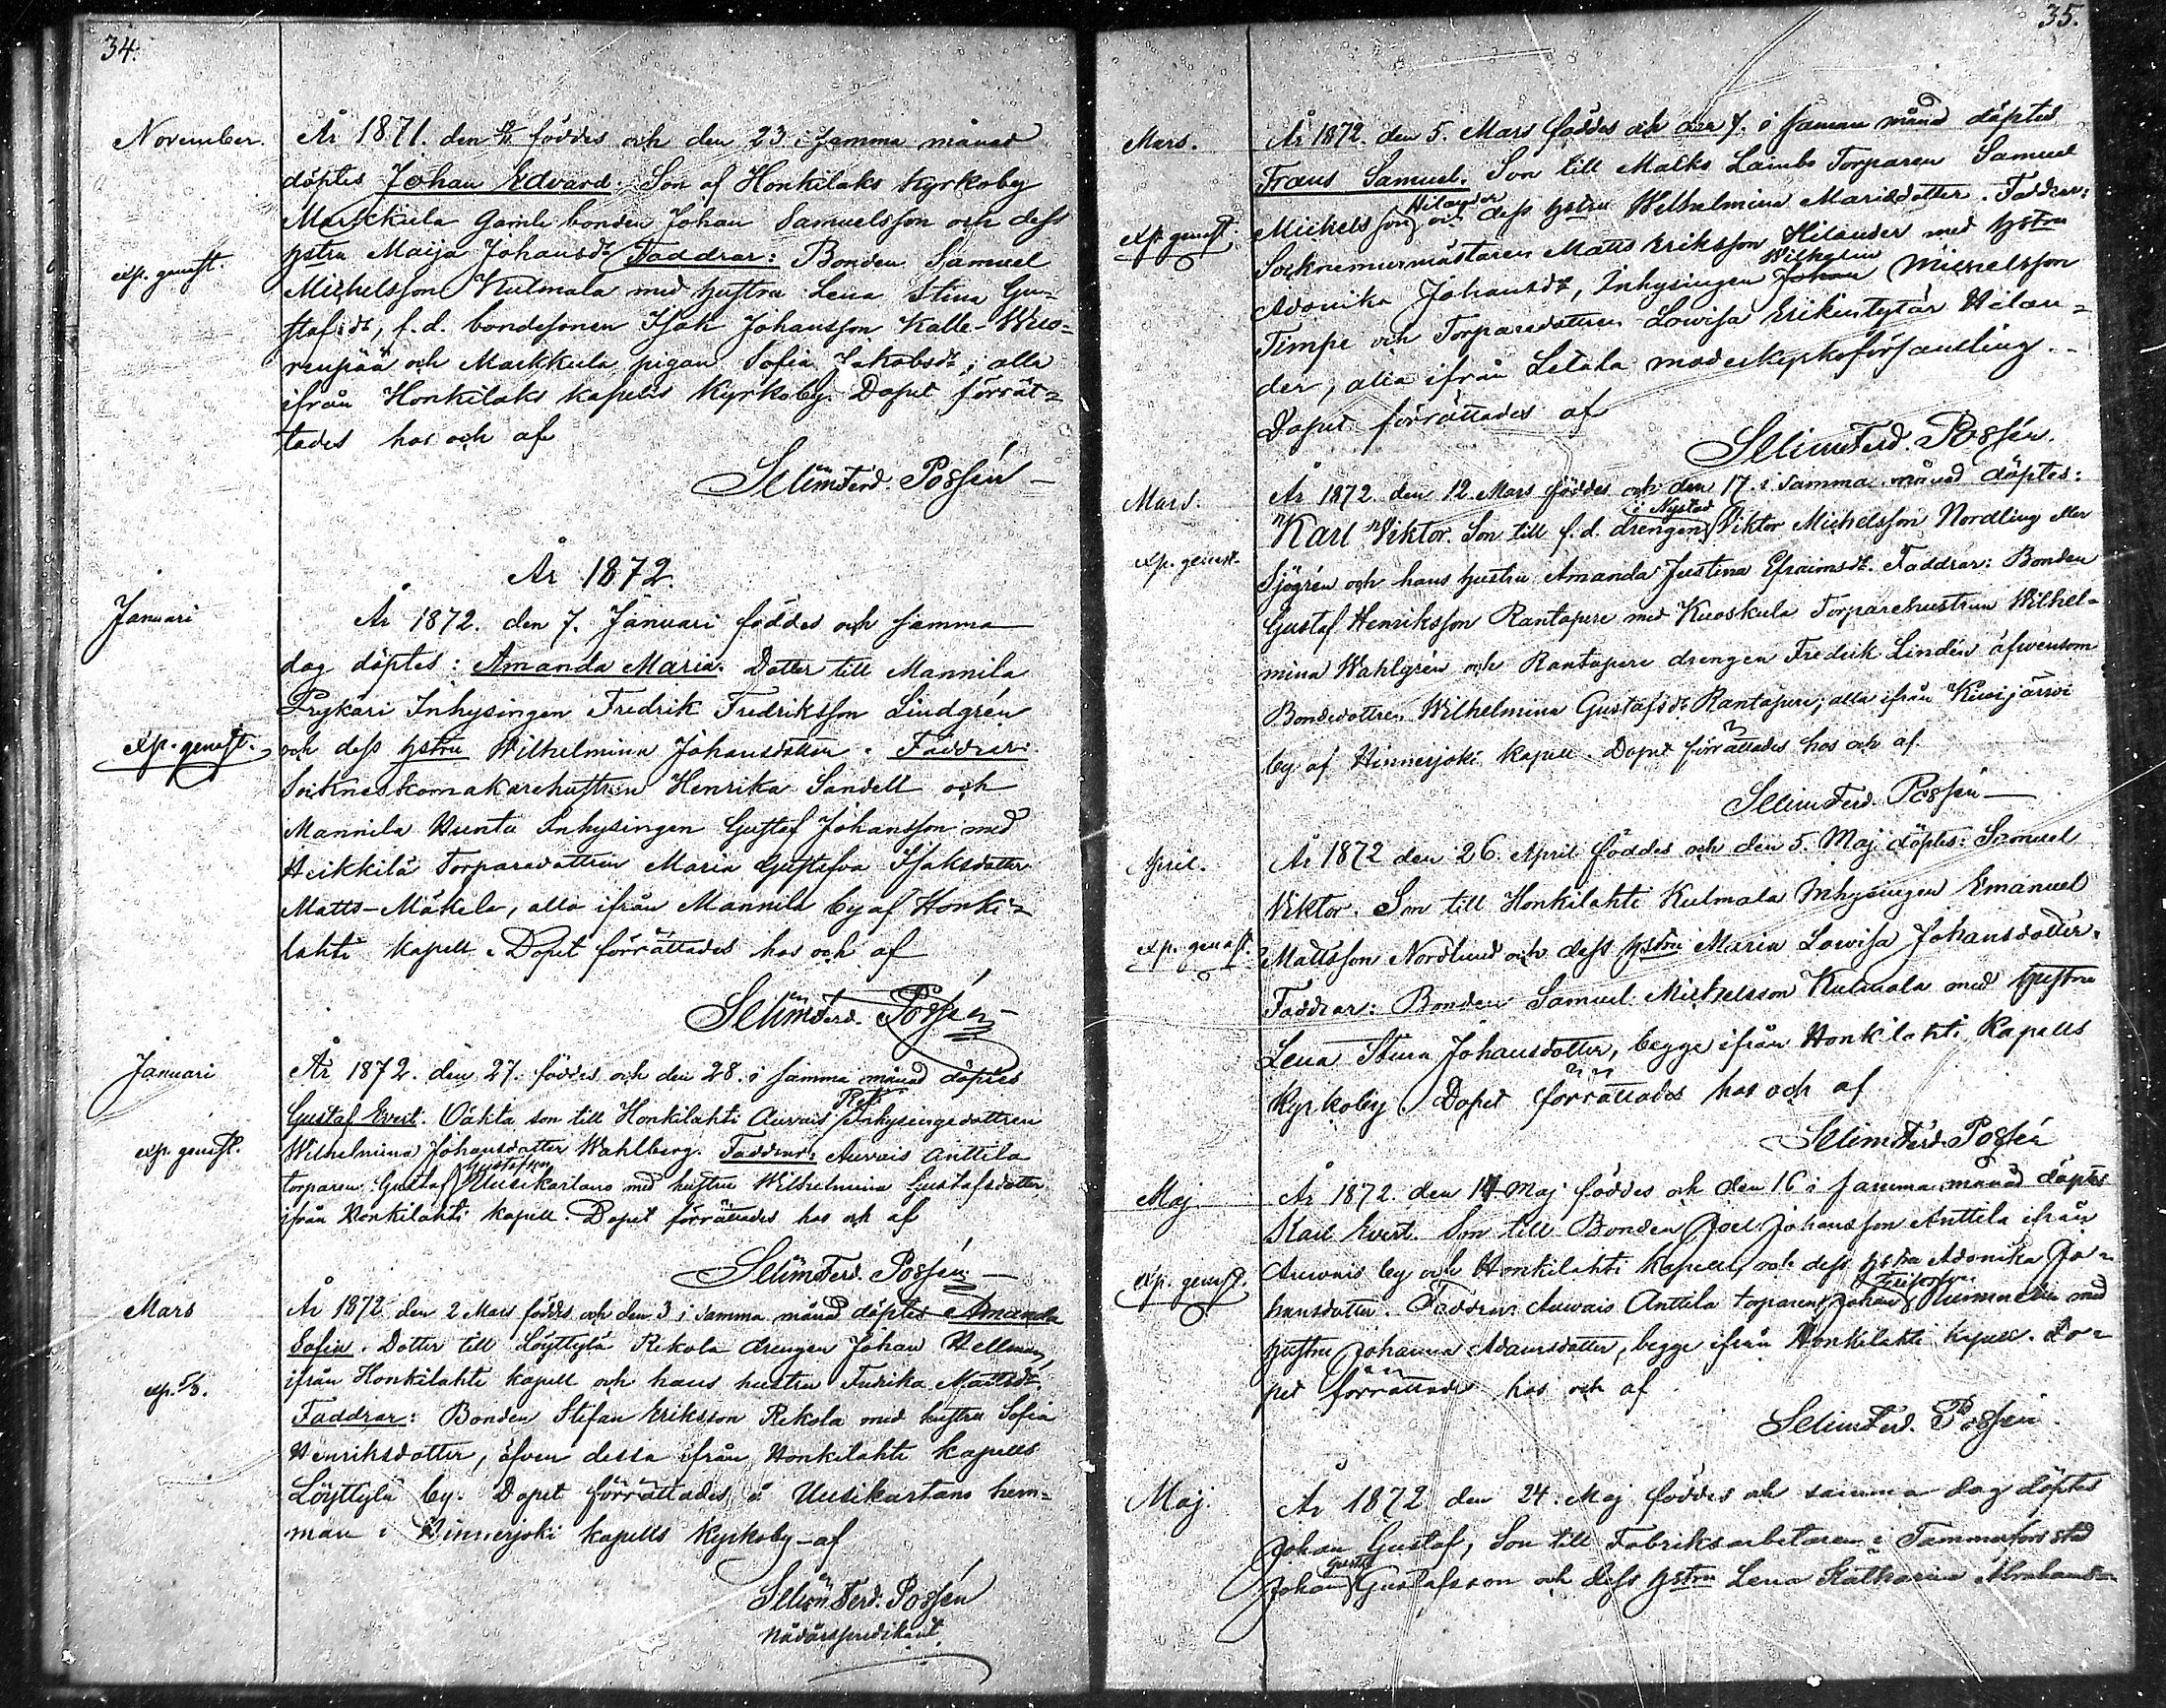 34.
November. År 1871. den föddes och den 23 i samma månad
döptes Johan Edvard. Son af Honkilaks Kyrkoby
Markkula Gamle bonden Johan Samuelsson och dess
exp. genast. hstru Maija Johansdr Faddrar: Bonden Samuel
Michelsson Kulmala med hustru Lena Stina Gu=
stafsdr, f.d. bondesonen Isak Johansson Kalle-Wuo=
renpää och Markkula pigan Sofia Jakobsdr; alla
ifrån Honkilaks Kapells Kyrkoby. Dopet förrät=
tades hos och af
Selim Ferd. Possén
År 1872.
Januari År 1872. den 7. Januari föddes och samma
dag döptes: Amanda Maria. Dotter till Mannila
Prykäri Inhysingen Fredrik Fredriksson Lindgrén
exp. genast. och dess hstru Wilhelmina Johansdotter. Faddrar:
Sockneskomakarehustrun Henrika Sandell och
Mannila Vuntu Inhysingen Gustaf Johansson med
Heikkilä Torparedottren Maria Gustafva Isaksdotter
Matts-Mäkelä, alla ifrån Mannila by af Honki=
lahti Kapell. Dopet förrättades hos och af
Selim Ferd. Possén
Januari År 1872. den 27. föddes och den 28. i samma månad döptes
Gustaf Evert. Oäkta son till Honkilahti Auvais Inhysingedottren
exp. genast. Wilhelmina Johansdotter Wahlberg. Faddrar: Auvais Anttila
Gustafsson
torparen Gustaf Uusikartano med hustru Wilhelmina Gustafsdotter
ifrån Honkilahti kapell. Dopet förrättades hos och af
Selim Ferd. Possén
Mars År 1872 den 2 Mars föddes och den 3 i samma månad döptes Amanda
Sofia. Dotter till Löyttylä Rekola drengen Johan Hellman,
exp. 5/3. ifrån Honkilahti kapell och hans hustru Fredrika Mattsdr.
Faddrar: Bonden Stefan Eriksson Rekola med hustru Sofia
Henriksdotter, äfven dessa ifrån Honkilahti kapells
Löyttylä by. Dopet förrättades å Uusikartano hem=
man i Hinnerjoki kapells Kyrkoby af
Selim Ferd. Possén
Nådårspredikant.
35.
Mars. År 1872. den 5. Mars föddes och den 7. i samma månad döptes
Frans Samuel. Son till Malko Lambo Torparen Samuel
Hilander
exp. genast. Mickelsson och dess hstru Wilhelmina Mariedotter. Faddrar:
Socknemurmästaren Matts Eriksson Hilander med hstru
Wilhelm
Adonika Johansdr, Inhysingen Johan Michelsson
Timpe och Torparedottren Lowisa Erikintytär Hilan=
der, alla ifrån Letala moderkyrkoförsamling.
Dopet förrättades af
Selim Ferd. Possén.
Mars. År 1872. den 12. Mars föddes och den 17. i samma månad döptes:
i Nystad
Karl Viktor. Son till f.d. drengen Viktor Michelsson Nordling eller
exp. genast. Sjögrén och hans hustru Amanda Justina Efraimsdr. Faddrar: Bonden
Gustaf Henriksson Rantapere med Kuoskula Torparehustrun Wilhel=
mina Wahlgrén och Rantapere drengen Fredrik Lindén äfvensom
Bondedottren Wilhelmina Gustafsdr Rantapere; alla ifrån Kuvijärwi
by af Hinnerjoki kapell. Dopet förrättades hos och af.
Selim Ferd. Possén
April. År 1872 den 26. April föddes och den 5. Maj döptes: Samuel
Viktor. Son till Honkilahti Kulmala Inhysingen Emanuel
exp. genast. Mattsson Nordlund och dess hstru Maria Lowisa Johansdotter.
Faddrar: Bonden Samuel Michelsson Kulmala med hustru
Lena Stina Johansdotter, begge ifrån Honkilahti Kapells
Kyrkoby. Dopet förrättades hos och af
Selim Ferd. Possén
Maj År 1872. den 14 Maj föddes och den 16 i samma månad döptes
Karl Evert. Son till Bonden Joel Johansson Anttila ifrån
exp. genast. Auwais by och Honkilahti Kapell, och dess hstru Adonika Jo=
hansdotter. Faddrar: Auwais Anttila torparen Johan med
hustru Johanna Adamsdotter, begge ifrån Honkilahti kapell. Do=
pet förrättades hos och af
Selim Ferd. Possén
Maj. År 1872 den 24. Maj föddes och samma dag döptes
Johan Gustaf, Son till Fabriksarbetaren i Tammerfors stad
Gustaf
Johan Gustafsson och dess hstru Lena Katharina Abrahams=